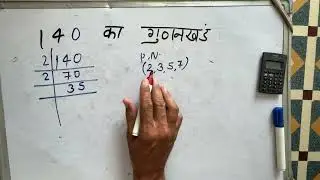 140 का गुणनखंड
P.N.
2 | 140 (2,3,5,7)
2 | 70
35